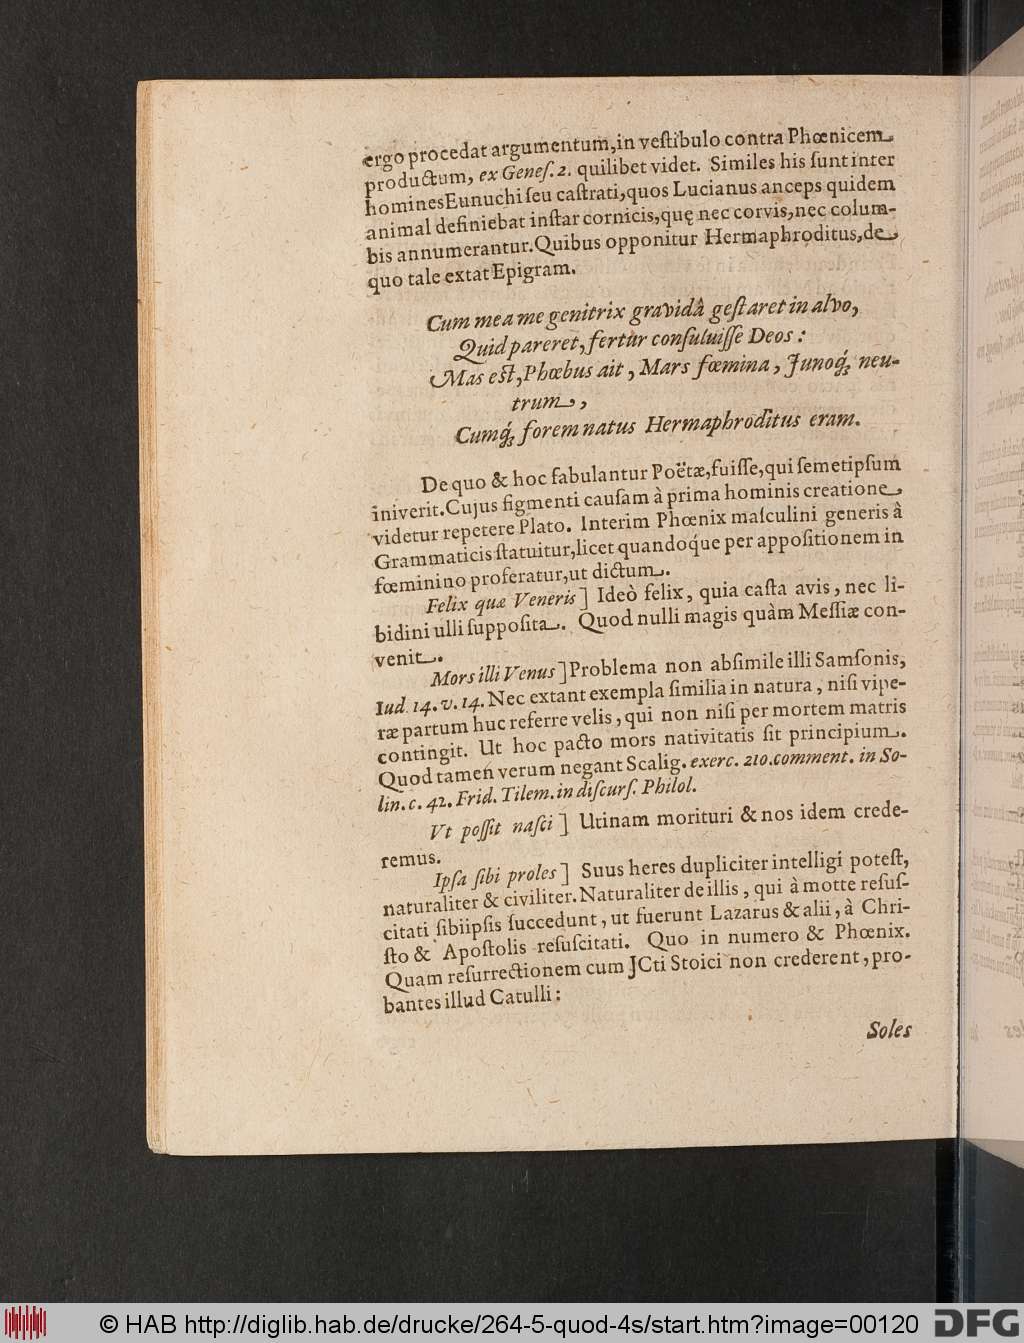 ergo procedat argumentum,in veſtibulo contra Phœnicem
productum, ex Geneſ. 2. quilibet videt. Similes his ſunt inter
hominesEunuchi ſeu caſtrati,quos Lucianus anceps quidem
animal definiebat inſtar cornicis,quę nec corvis,nec colum-
bis annumerantur.Quibus opponitur Hermaphroditus,de
quo tale extat Epigram.
Cum mea me genitrix gravidâ geſtaret in alvo,
Quid pareret, fertur conſuluiſſe Deos:
Mas eſt,Phœbus ait, Mars fœmina, Junoq́; neu-
trum,
Cumq́; forem natus Hermaphroditus eram.
De quo & hoc fabulantur Poëtæ,fuiſſe,qui ſemetipſum
iniverit.Cujus figmenti cauſam à prima hominis creatione
videtur repetere Plato. Interim Phœnix maſculini generis à
Grammaticis ſtatuitur,licet quandoq́ue per appoſitionem in
fœminino proferatur,ut dictum.
Felix quæ Veneris] Ideò felix, quia caſta avis, nec li-
bidini ulli ſuppoſita. Quod nulli magis quàm Meſſiæ con-
venit.
Mors illi Venus]Problema non abſimile illi Samſonis,
Iud. 14. v. 14. Nec extant exempla ſimilia in natura, niſi vipe-
ræ partum huc referre velis, qui non niſi per mortem matris
contingit. Ut hoc pacto mors nativitatis ſit principium.
Quod tamen verum negant Scalig. exerc. 210.comment. in So-
lin. c. 42. Frid. Tilem. in diſcurſ. Philol.
Vt poſſit naſci] Utinam morituri & nos idem crede-
remus.
Ipſa ſibi proles] Suus heres dupliciter intelligi poteſt,
naturaliter & civiliter.Naturaliter de illis, qui à motte reſuſ-
citati ſibiipſis ſuccedunt, ut fuerunt Lazarus & alii, à Chri-
ſto & Apoſtolis reſuſcitati. Quo in numero & Phœnix.
Quam reſurrectionem cum JCti Stoici non crederent, pro-
bantes illud Catulli:
Soles
© HAB http://diglib.hab.de/drucke/264-5-quod-4s/start.htm?image=00120
DFG